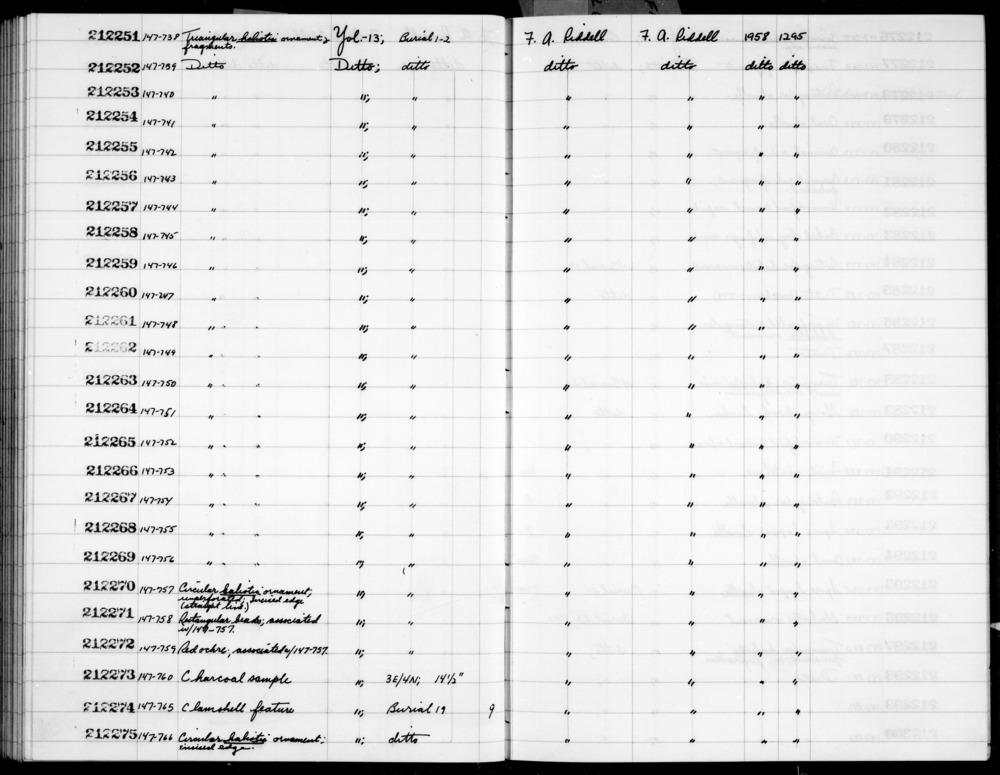 212251 147-738 Triangular haliotis ornament, Yol.-13; Burial 1-2 F. A. Riddell F. A. Riddell 1958 1295
fragments.
212252 147-739 Ditto Ditto; ditto ditto ditto ditto ditto
212253 147-740 " "; " " " " "
212254 147-741 " "; " " " " "
212255 147-742 " "; " " " " "
212256 147-743 " "; " " " " "
212257 147-744 " "; " " " " "
212258 147-745 " "; " " " " "
212259 147-746 " "; " " " " "
212260 147-747 " " "; " " " " "
212261 147-748 " " " "; " " " " "
212262 147-749 " " " "; " " " " "
212263 147-750 " " " "; " " " " "
212264 147-751 " " " "; " " " " "
212265 147-752 " " " "; " " " " "
212266 147-753 " " " "; " " " " "
212267 147-754 " " " "; " " " " "
212268 147-755 " " " "; " " " " "
212269 147-756 " " " "; " " " " "
212270 147-757 Circular haliotis ornament, "; " " " " "
unperforated; incised edge
(straight line.)
212271 147-758 Rectangular beads; associated "; " " " " "
w/147-757.
212272 147-759 Red ochre; associated w/147-757. "; " " " " "
212273 147-760 Charcoal sample "; 3E/4N; 14½" " " " "
212274 147-765 Clamshell feature "; Burial 19 9 " " " "
212275 147-766 Circular haliotis ornament; "; ditto " " " "
incised edge.